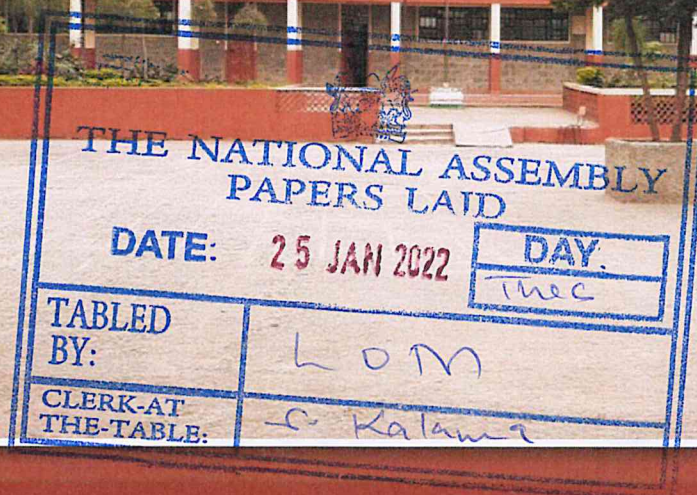 THE NATIONAL ASSEMBLY
PAPERS LAID
DATE: 25 JAN 2022
DAY.
TABLED BY: LOM
CLERK-AT THE-TABLE: S. Kalama